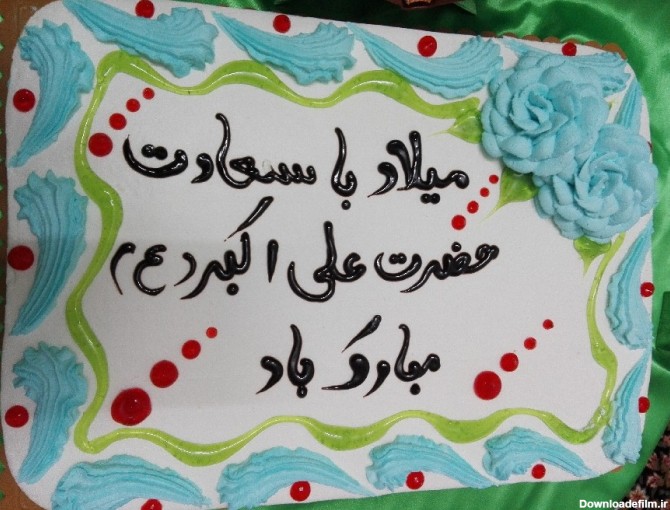 میلاد با سعادت
حضرت علی اکبر (ع)
مبارک باد
Downloadefilm.ir